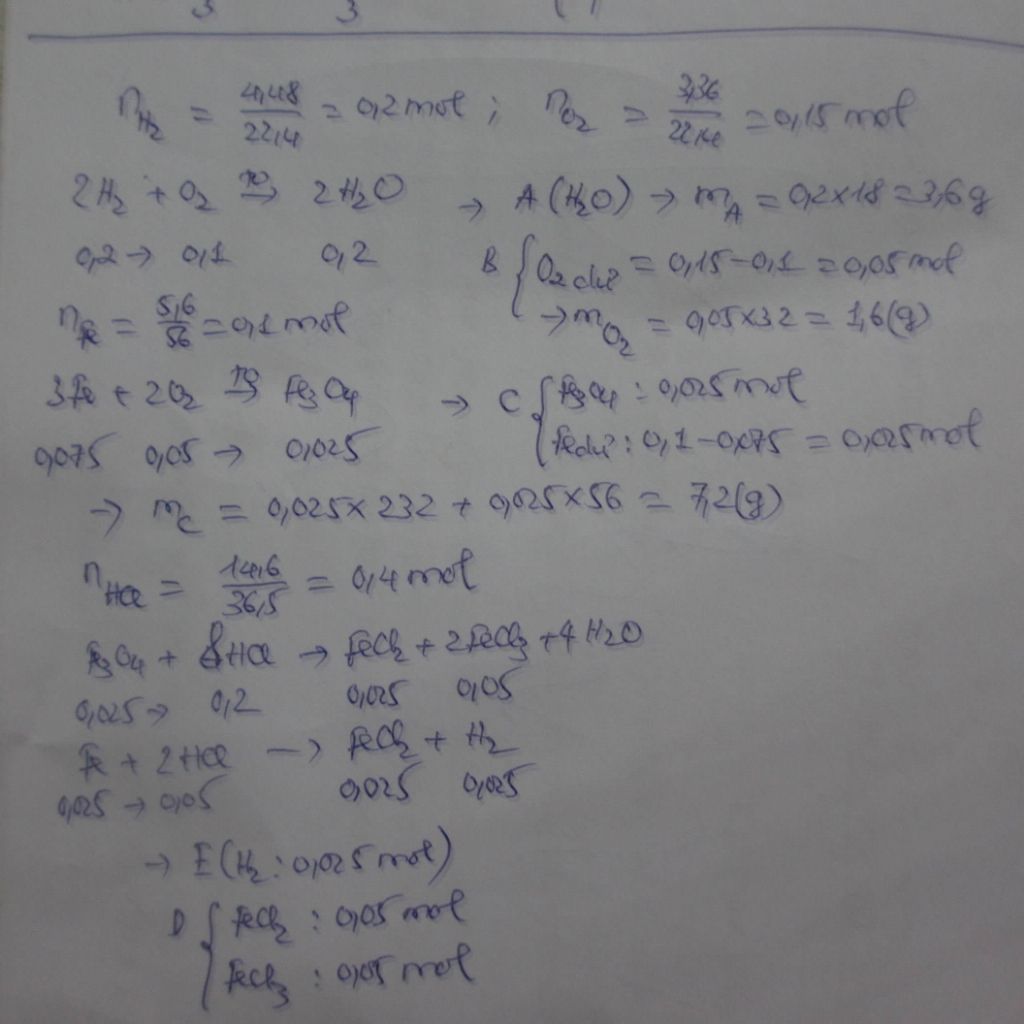 3 3
n_H₂ = 4,48/22,4 = 0,2 mol ; n_O₂ = 3,36/22,4 = 0,15 mol
2H₂ + O₂ →(t°) 2H₂O → A (H₂O) → m_A = 0,2×18 = 3,6g
0,2 → 0,1 0,2 B { O₂ dư = 0,15-0,1 = 0,05 mol
n_Fe = 5,6/56 = 0,1 mol → m_O₂ = 0,05×32 = 1,6(g)
3Fe + 2O₂ →(t°) Fe₃O₄ → C { Fe₃O₄ : 0,025 mol
0,075 0,05 → 0,025 Fe dư : 0,1-0,075 = 0,025 mol
→ m_C = 0,025×232 + 0,025×56 = 7,2(g)
n_HCl = 14,6/36,5 = 0,4 mol
Fe₃O₄ + 8HCl → FeCl₂ + 2FeCl₃ + 4H₂O
0,025 → 0,2 0,025 0,05
Fe + 2HCl → FeCl₂ + H₂
0,025 → 0,05 0,025 0,025
→ E (H₂ : 0,025 mol)
D { FeCl₂ : 0,05 mol
FeCl₃ : 0,05 mol